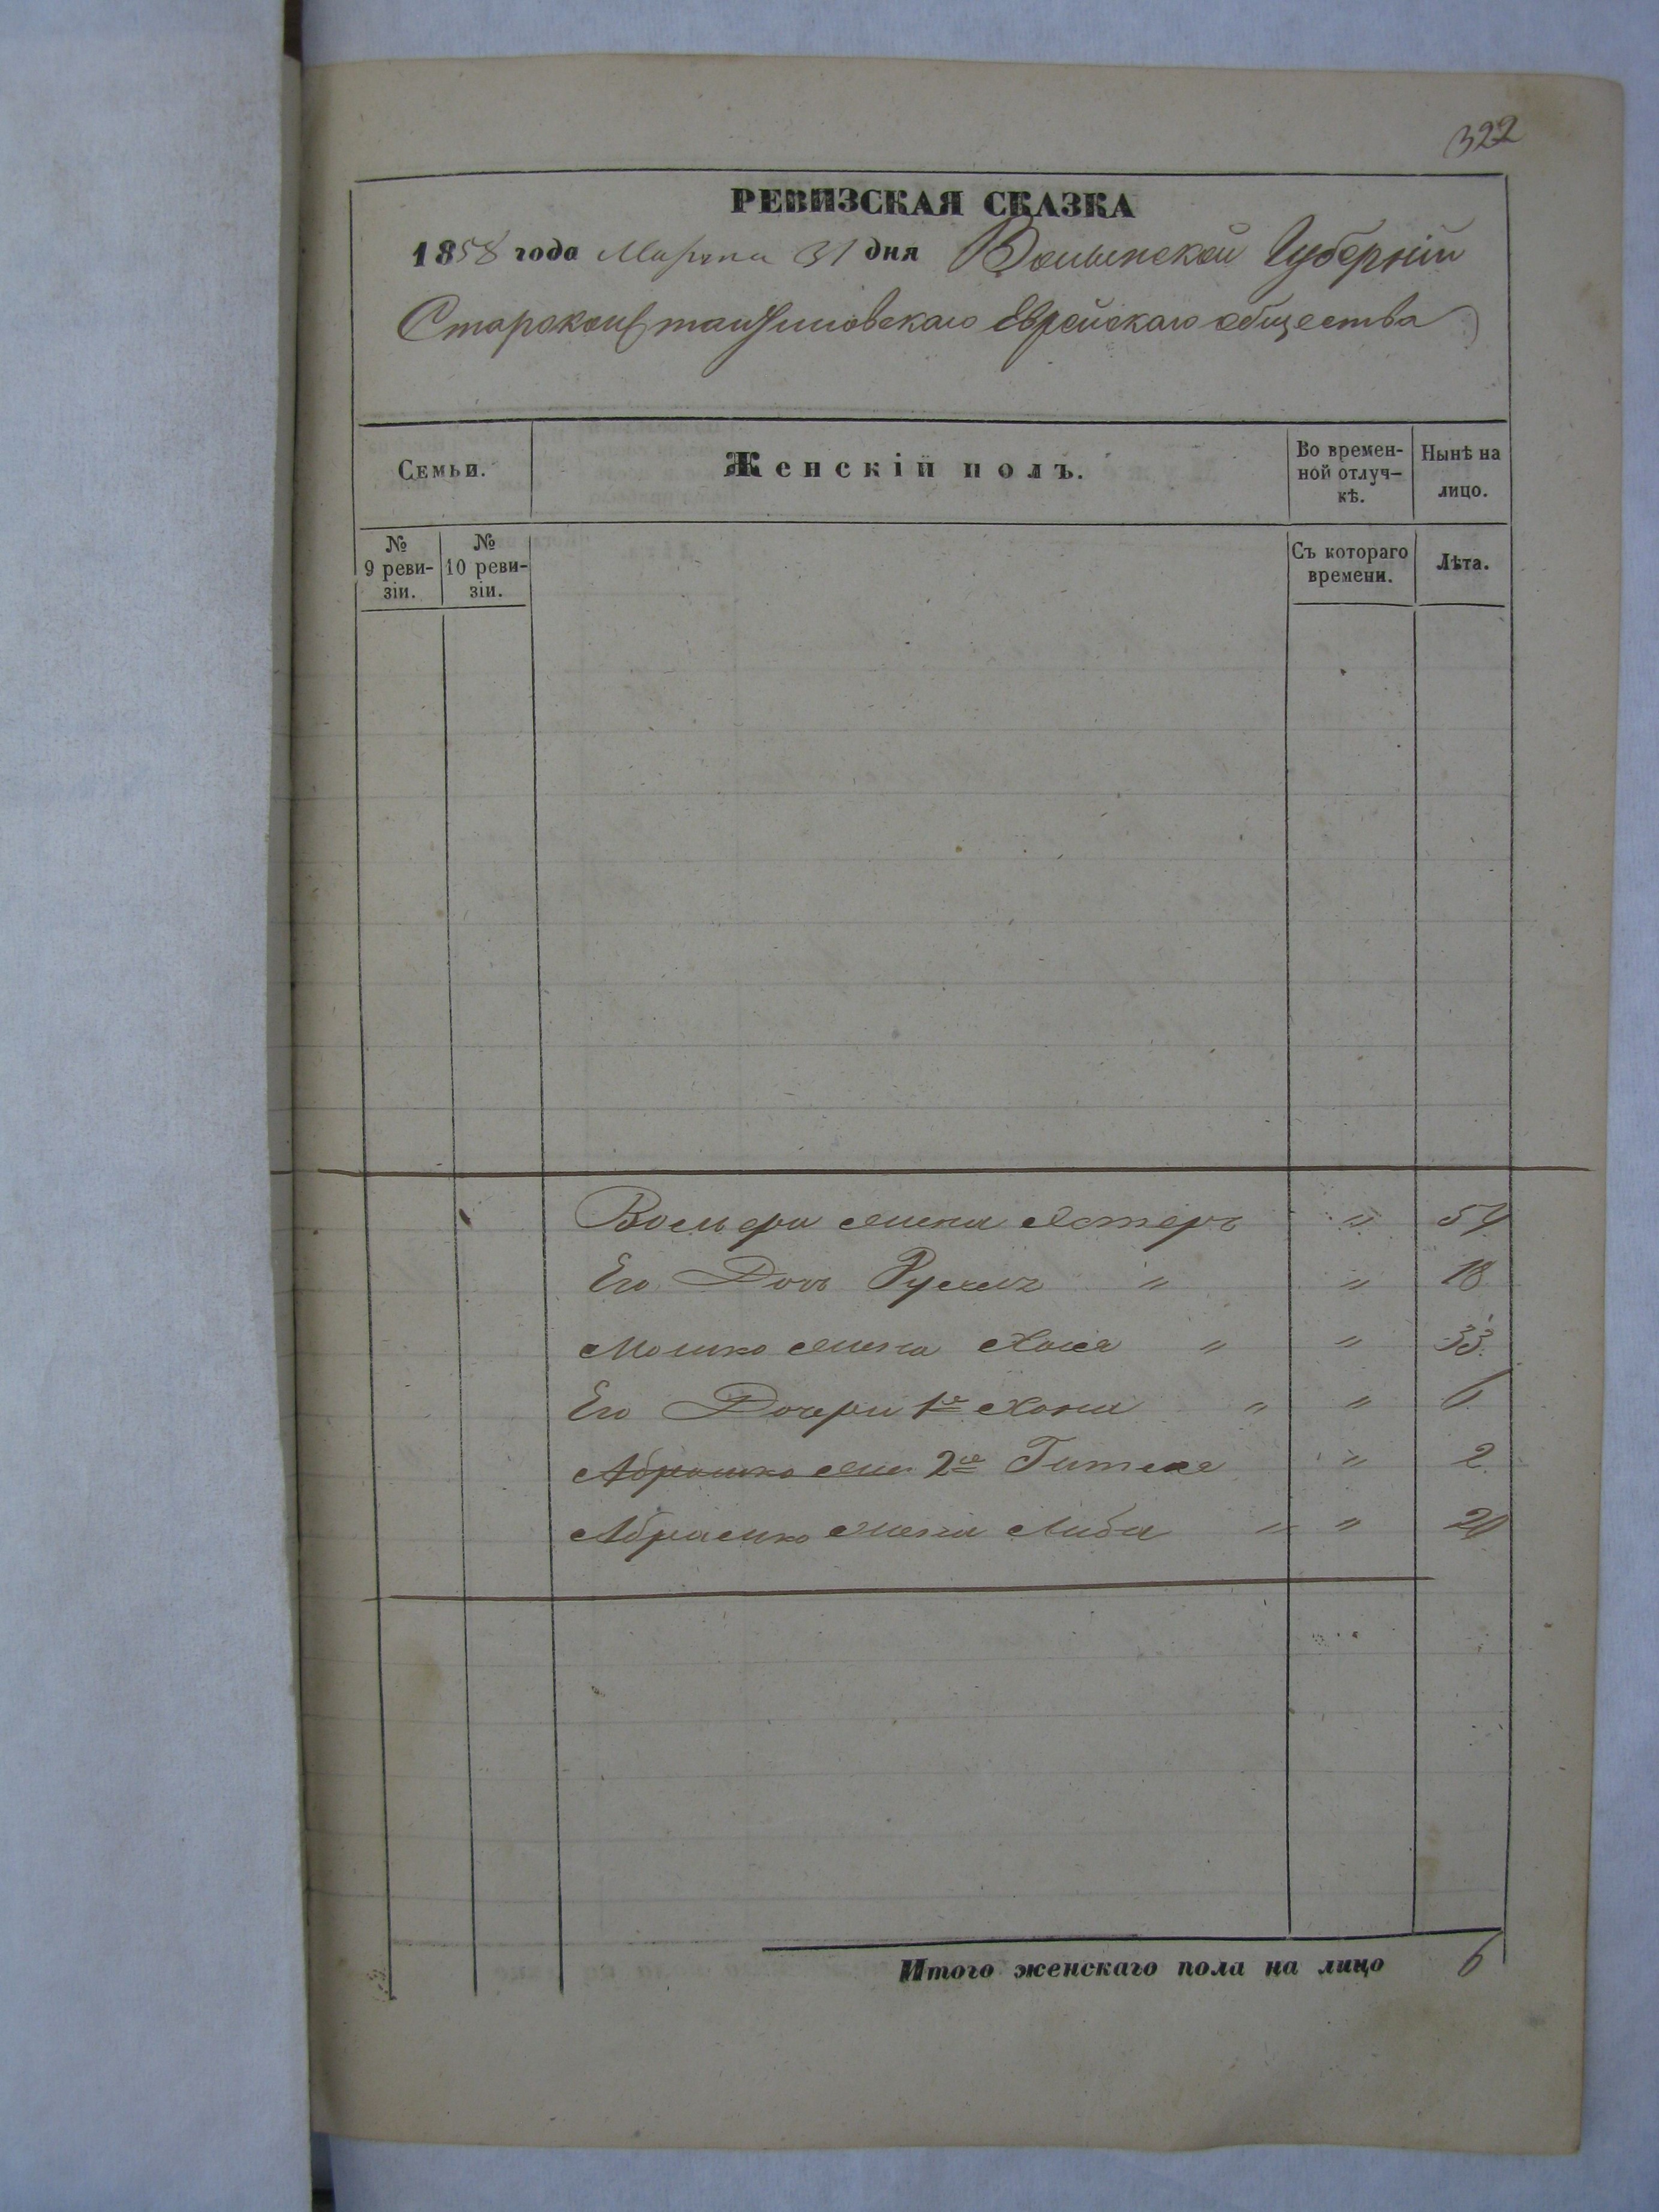 322
РЕВИЗСКАЯ СКАЗКА
1858 года Марта 31 дня Волынской Губерніи
Староконстантиновскаго Еврейскаго общества
Семьи.
Женскій полъ.
Во времен-
ной отлуч-
кѣ.
Нынѣ на
лицо.
№
9 реви-
зіи.
№
10 реви-
зіи.
Съ котораго
времени.
Лѣта.
Вольфа жена Эстеръ " 54
Его Дочь " " 18
Мошко жена Хая " " 33
Его Дочери 1я " " 6
Абрашко 2я Гителя " 2
Абрашко жена Либа " " 20
Итого женскаго пола на лицо 6